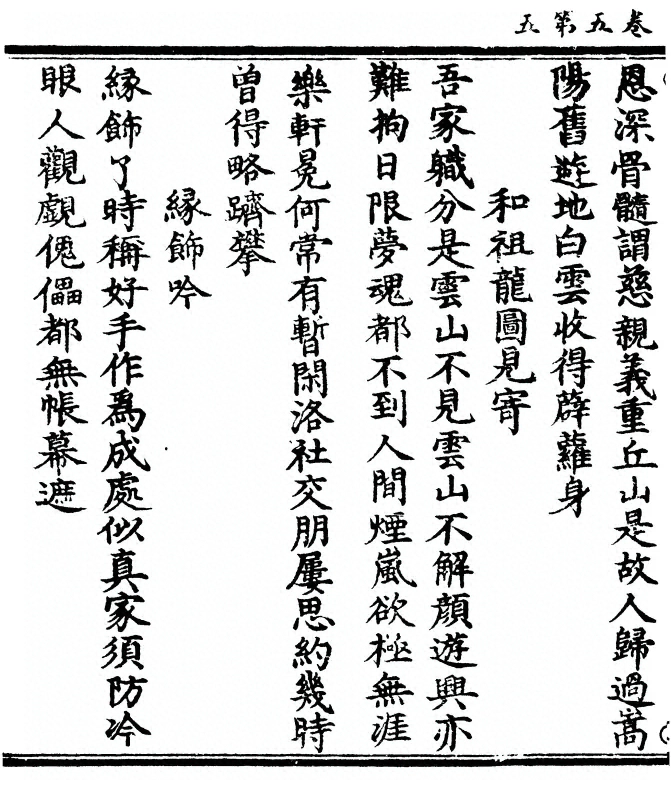 卷五第五
恩深骨髓謂慈親義重丘山是故人歸過嵩
陽舊遊地白雲收得薜蘿身
和祖龍圖見寄
吾家職分是雲山不見雲山不解顏遊興亦
難拘日限夢魂都不到人間煙嵐欲極無涯
樂軒冕何常有暫閑洛社交朋屢思約幾時
曾得略躋攀
緣飾吟
緣飾了時稱好手作爲成處似真家須防冷
眼人觀覷傀儡都無帳幕遮